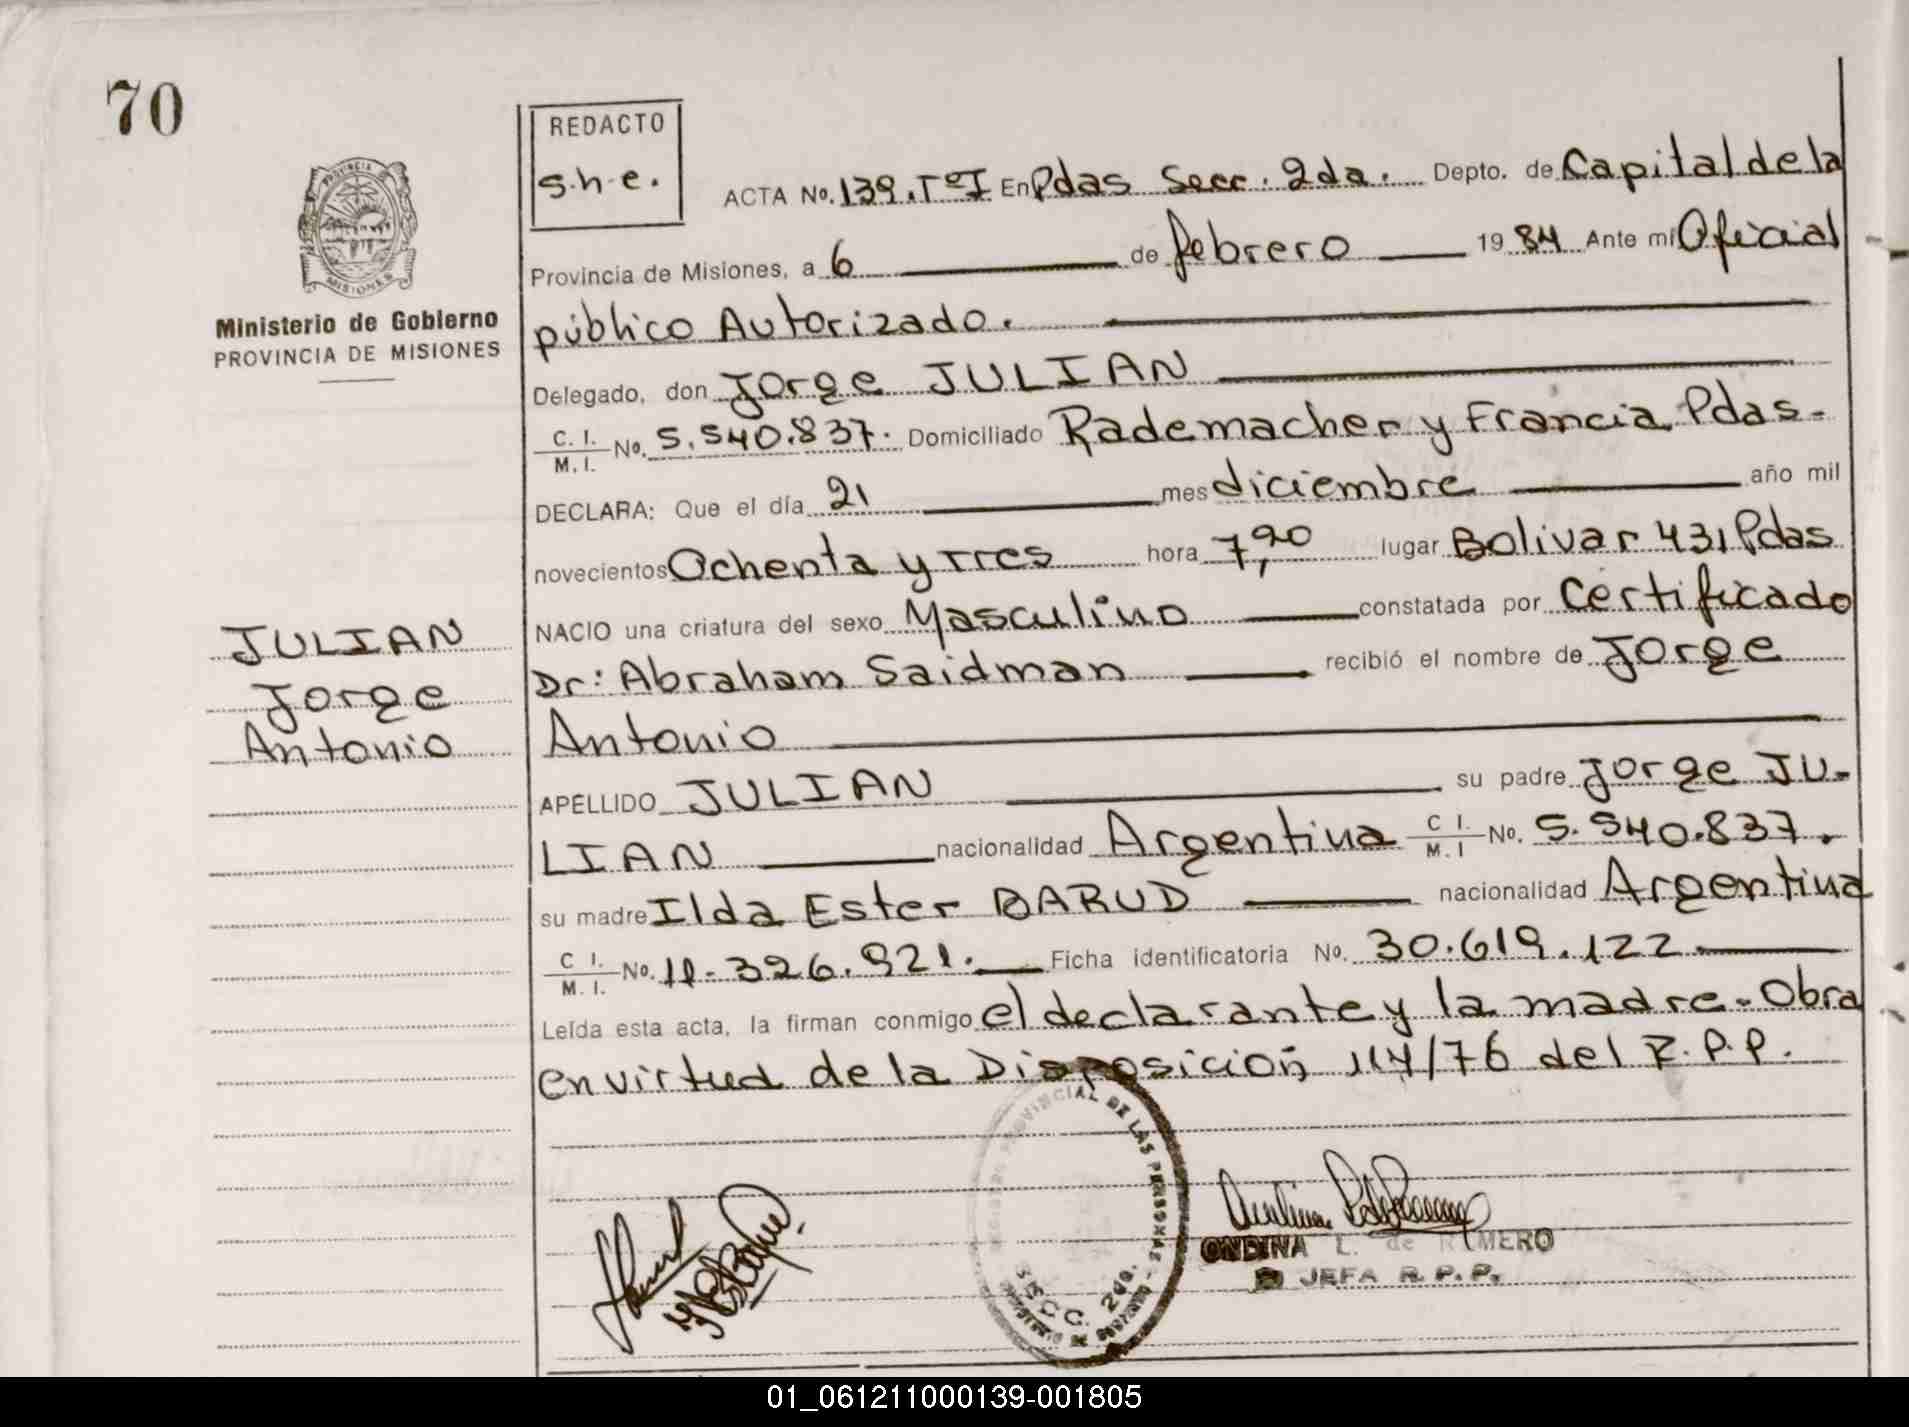 70
REDACTO
s.h.e.
PROVINCIA DE
MISIONES
Ministerio de Gobierno
PROVINCIA DE MISIONES
ACTA No. 139.TºI En Pdas Secc. 2da. Depto. de Capital de la
Provincia de Misiones, a 6 de febrero 1984 Ante mí Oficial
público Autorizado.
Delegado, don Jorge JULIAN
C. I. M. I. No. 5.540.837. Domiciliado Rademacher y Francia Pdas.
DECLARA: Que el día 21 mes diciembre año mil
novecientos Ochenta y Tres hora 7,20 lugar Bolivar 431 Pdas
NACIO una criatura del sexo Masculino constatada por Certificado
Dr: Abraham Saidman recibió el nombre de Jorge
Antonio
JULIAN
Jorge
Antonio
APELLIDO JULIAN su padre Jorge JU-
LIAN nacionalidad Argentina C I. M. I No. 5.540.837.
su madre Ilda Ester BARUD nacionalidad Argentina
C I. M. I. No. 11.326.921. Ficha identificatoria No. 30.619.122
Leída esta acta, la firman conmigo el declarante y la madre. Obra
en virtud de la Disposición 114/76 del R.P.P.
PROVINCIAL DE LAS PERSONAS
SECC. 2da.
ONDINA L. de ROMERO
JEFA R.P.P.
01_061211000139-001805